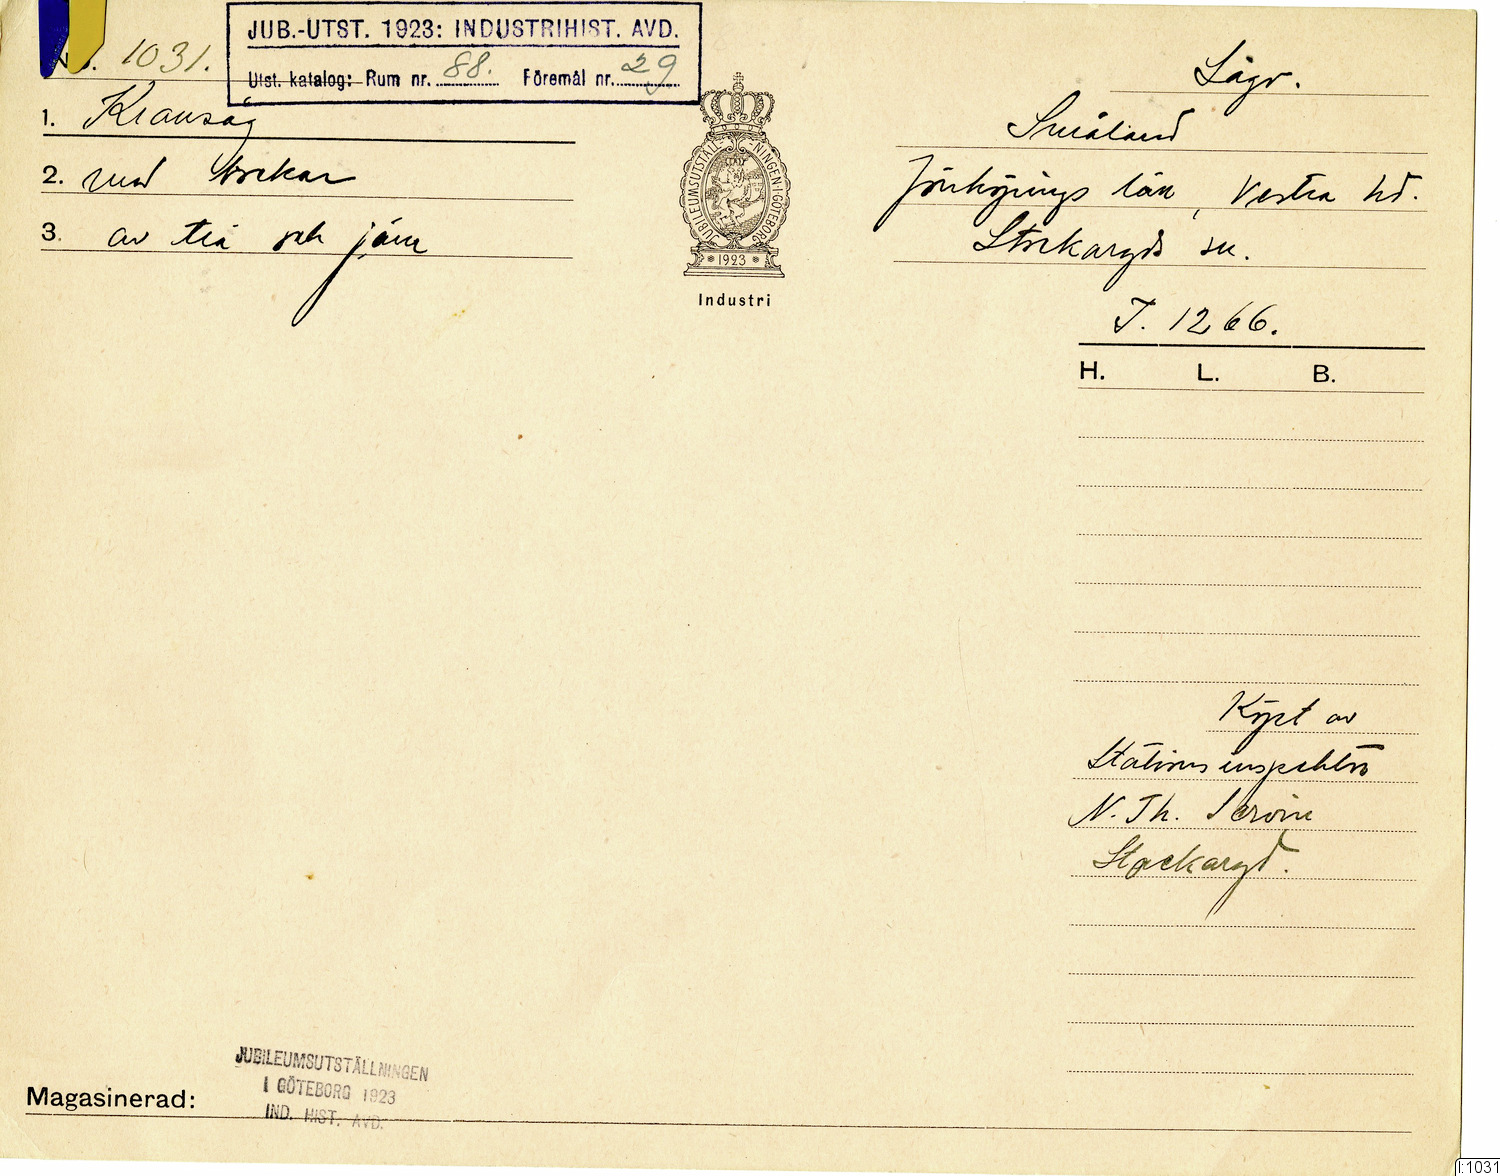 JUB.-UTST. 1923: INDUSTRIHIST. AVD.
Utst. katalog: Rum nr. 88. Föremål nr. 29
No. 1031.
1. Kransåg
2. med bockar
3. av trä och järn
JUBILEUMSUTSTÄLL-NINGEN·I·GÖTEBORG
* 1923 *
Industri
Sågv.
Småland
Jönköpings län, Vestra hd.
Stockaryds sn.
T. 1266.
H. L. B.
Köpt av
Stationsinspektör
N. Th.
Stockaryd.
JUBILEUMSUTSTÄLLNINGEN
I GÖTEBORG 1923
IND. HIST. AVD.
Magasinerad:
I:1031